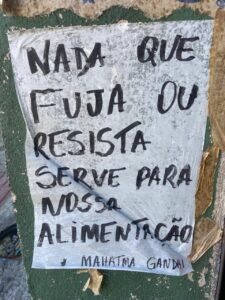 NADA QUE
FUJA OU
RESISTA
SERVE PARA
NOSSA
ALIMENTAÇÃO
MAHATMA GANDHI